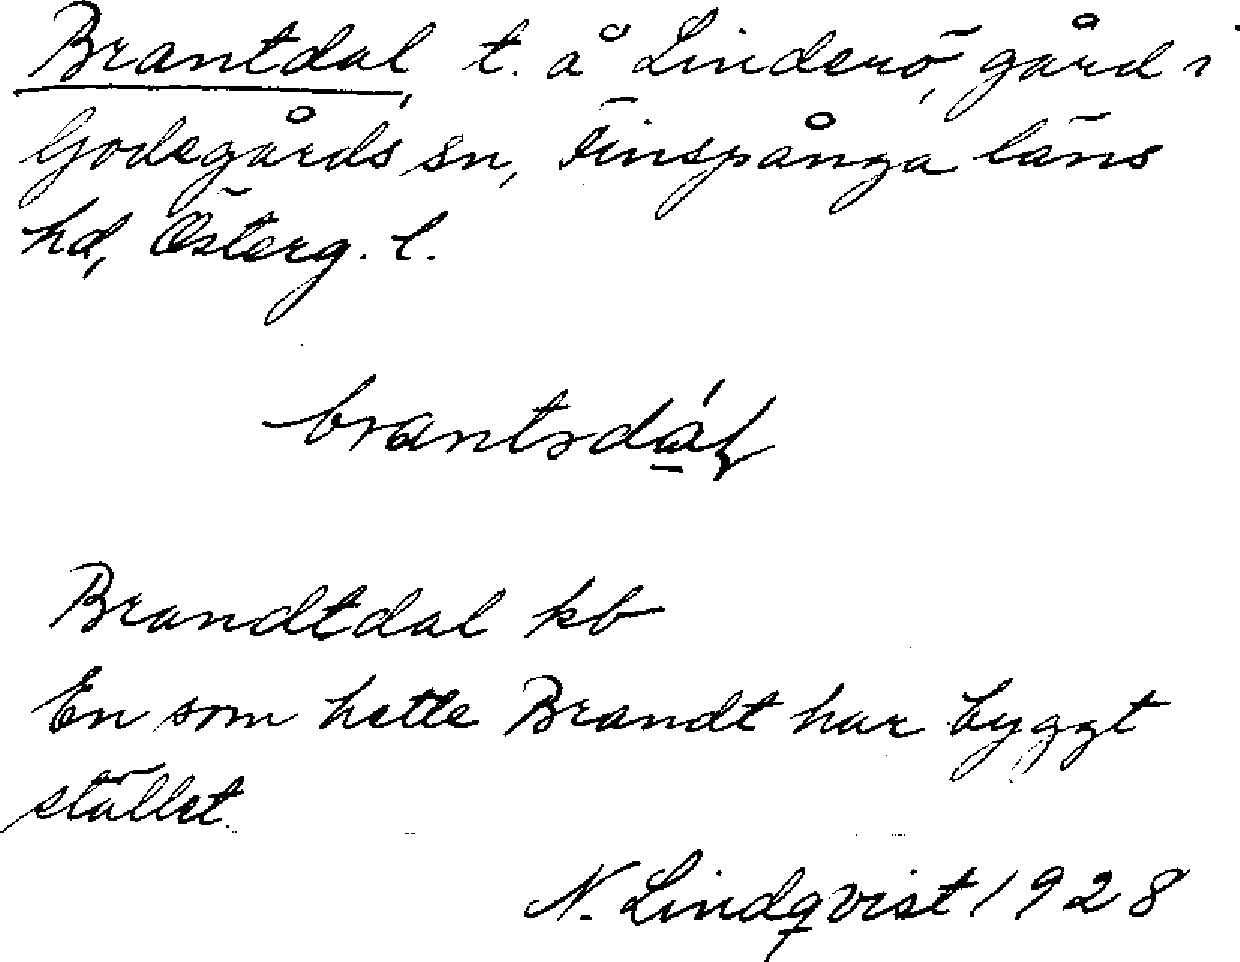 Brantdal, t. å Linderö, gård i
Godegårds sn, Finspånga läns
hd, Österg. l.
brantsdáɭ
Brandtdal kb
En som hette Brandt har byggt
stället.
N. Lindqvist 1928